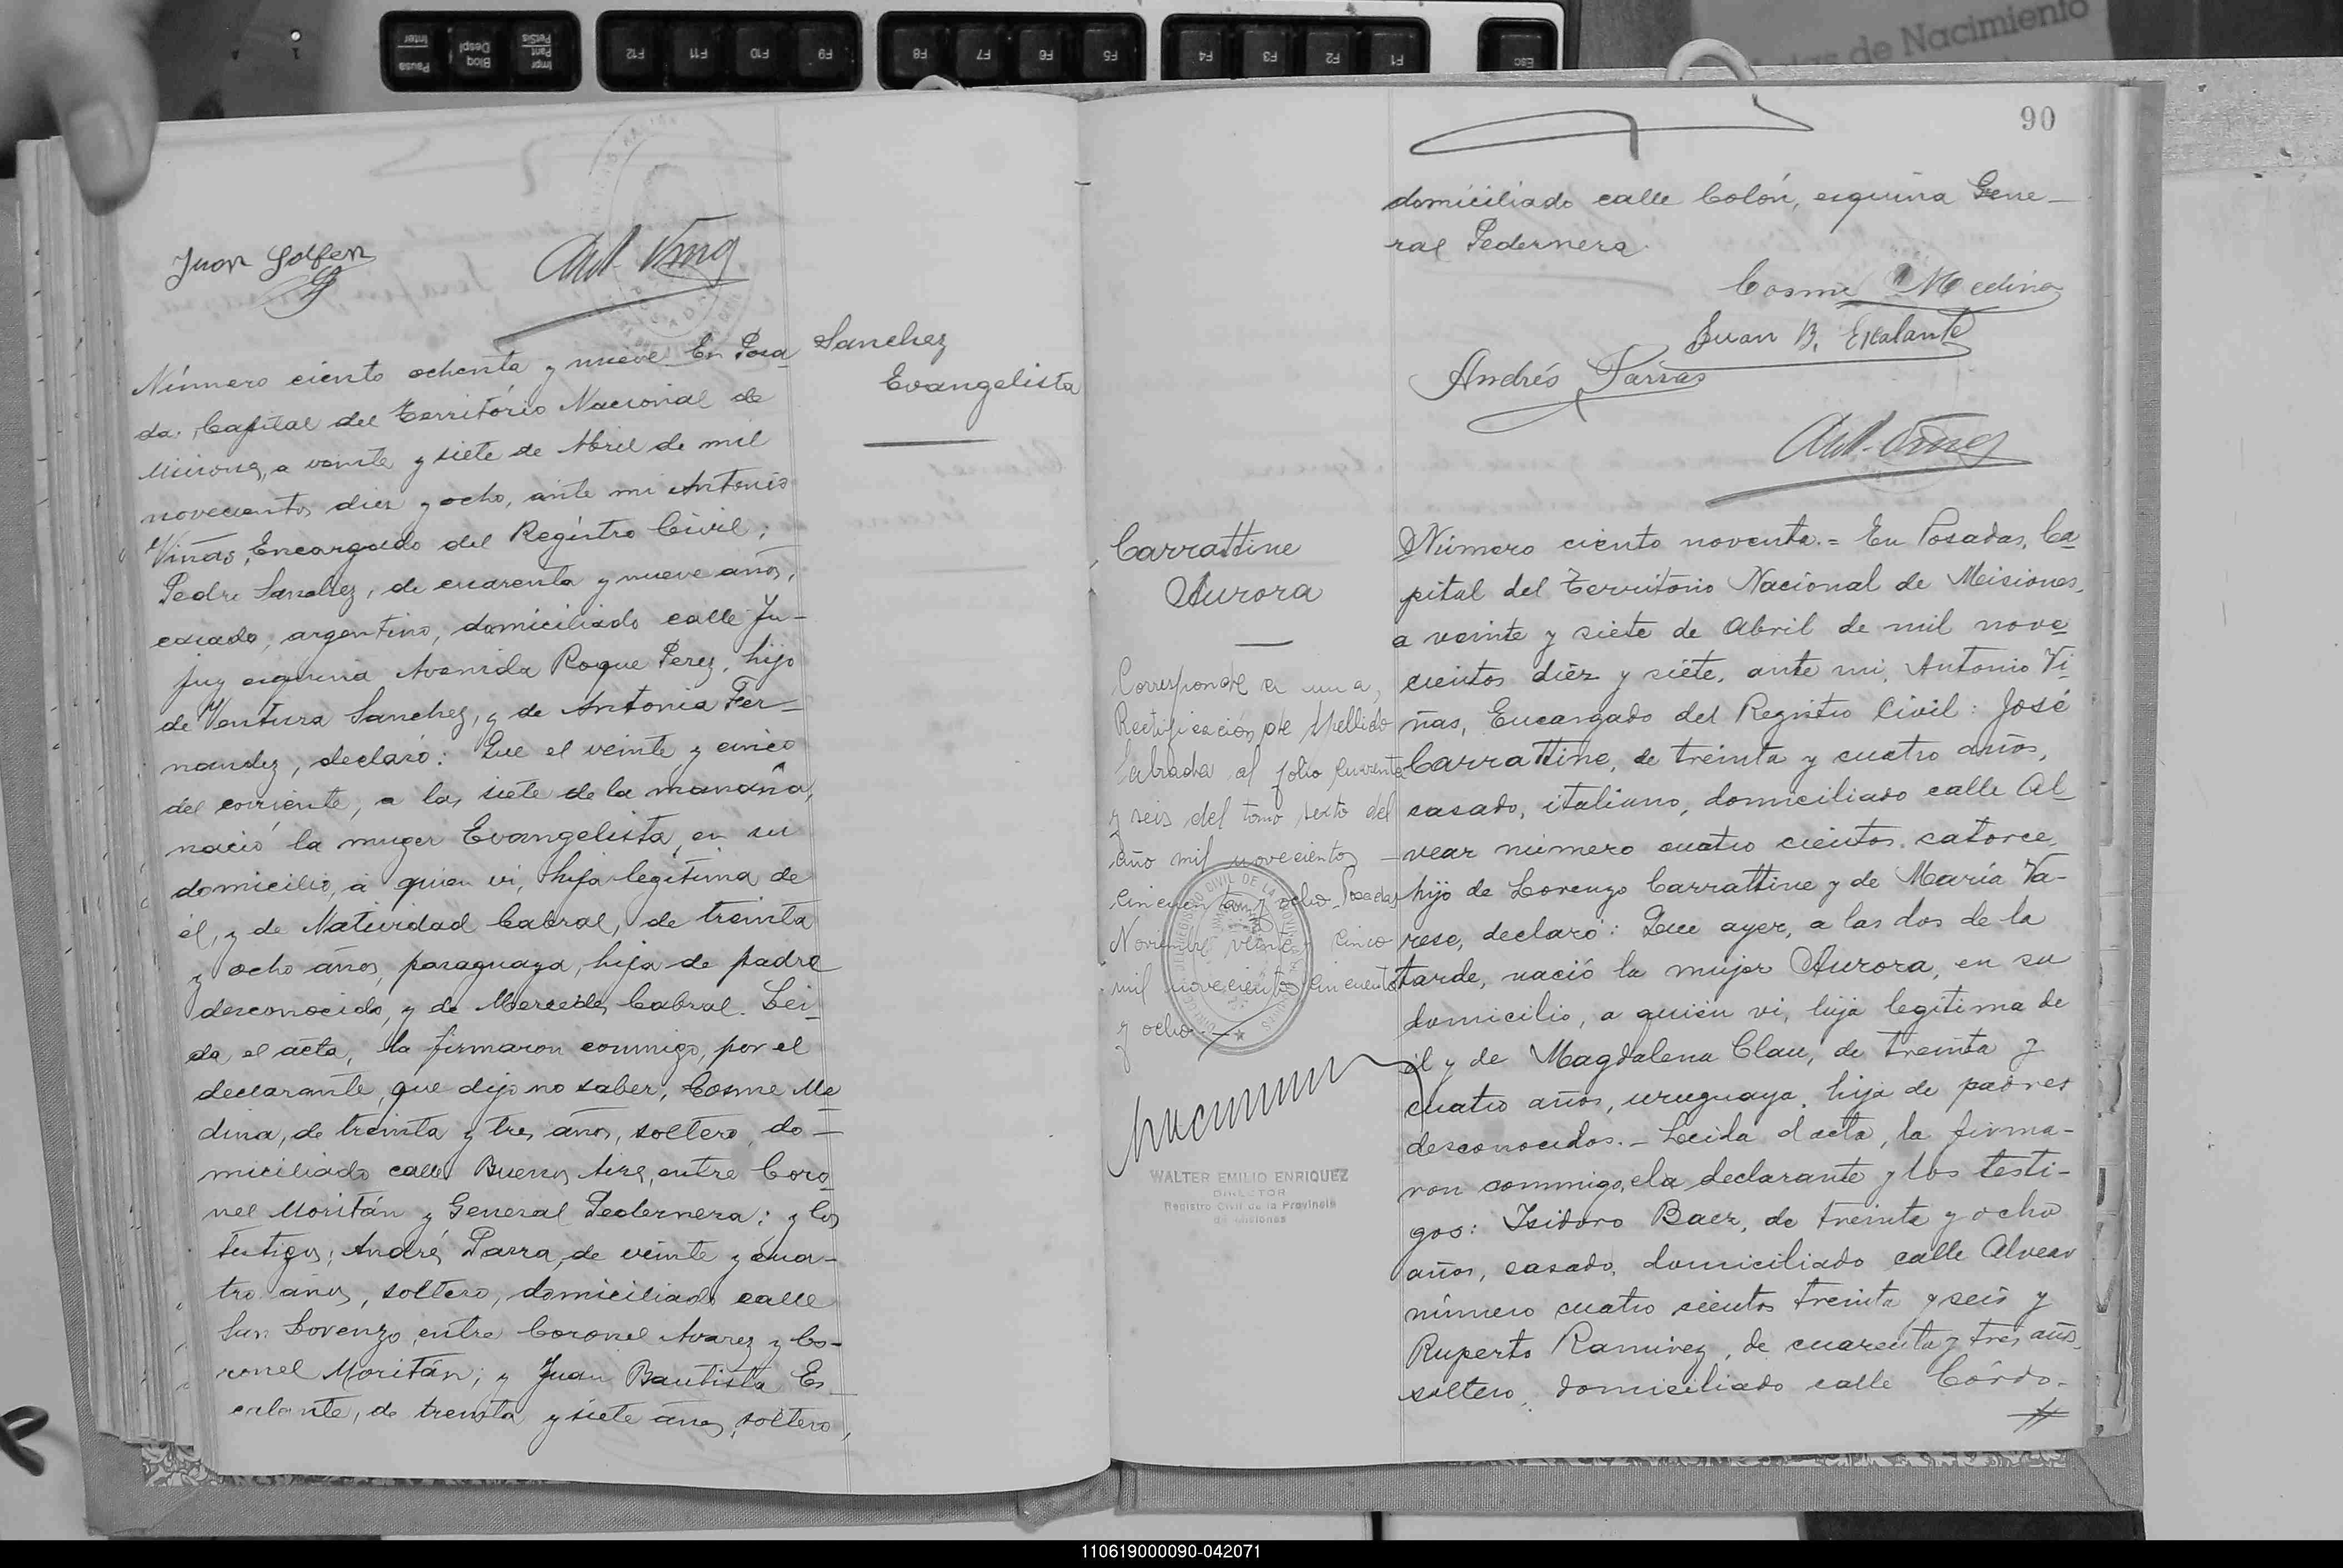 Juan Golfen
Ant. Viñas
Sanchez
Evangelista
Número ciento ochenta y nueve En Posa
da, Capital del Territorio Nacional de
Misiones, a veinte y siete de Abril de mil
novecientos diez y ocho, ante mi Antonio
Viñas, Encargado del Registro Civil;
Pedro Sanchez, de cuarenta y nueve años,
casado, argentino, domiciliado calle Ju-
juy esquina Avenida Roque Perez, hijo
de Ventura Sanchez, y de Antonia Fer-
nandez, declaró: Que el veinte y cinco
del corriente, a las siete de la mañana,
nació la muger Evangelista, en su
domicilio, a quien vi, hija legítima de
él, y de Natividad Cabral, de treinta
y ocho años, paraguaya, hija de padre
desconocido, y de Mercedes Cabral. Lei-
da el acta, la firmaron conmigo, por el
declarante, que dijo no saber, Cosme Me
dina, de treinta y tres años, soltero, do-
miciliado calle Buenos Aires, entre Coro
nel Moritán y General Pedernera; y los
testigos; Andrés Parra, de veinte y cua-
tro años, soltero, domiciliado calle
San Lorenzo, entre Coronel Alvarez y Co-
ronel Moritán; y Juan Bautista Es-
calante, de treinta y siete años, soltero,
90
domiciliado calle Colón, esquina Gene-
ral Pedernera.
Cosme Medina
Juan B. Escalante
Andrés Parras
Ant. Viñas
Carrattine
Aurora
Corresponde a una
Rectificación de Apellido
labrada al folio cuarenta
y seis del tomo sexto del
año mil novecientos
cincuenta y ocho. Posadas
Noviembre veinte y cinco
mil novecientos cincuenta
y ocho.-
WALTER EMILIO ENRIQUEZ
DIRECTOR
Registro Civil de la Provincia
de Misiones
Número ciento noventa.= En Posadas, Ca
pital del Territorio Nacional de Misiones,
a veinte y siete de Abril de mil nove
cientos diez y siete, ante mi, Antonio Vi
ñas, Encargado del Registro Civil: José
Carrattine, de treinta y cuatro años,
casado, italiano, domiciliado calle Al
vear número cuatro cientos catorce,
hijo de Lorenzo Carrattine y de María Va-
rese, declaró: Que ayer, a las dos de la
tarde, nació la mujer Aurora, en su
domicilio, a quien vi, hija legítima de
él y de Magdalena Clau, de treinta y
cuatro años, uruguaya, hija de padres
desconocidos.- Leida el acta, la firma-
ron conmigo, ela declarante y los testi-
gos: Isidoro Baez, de treinta y ocho
años, casado, domiciliado calle Alvear
número cuatro cientos treinta y seis y
Ruperto Ramirez, de cuarenta y tres años
soltero, domiciliado calle Córdo-
Pausa
Inter
Bloq
Despl
Impr
Pant
PetSis
F12
F11
F10
F9
F8
F7
F6
F5
F4
F3
F2
F1
Esc
de Nacimiento
110619000090-042071